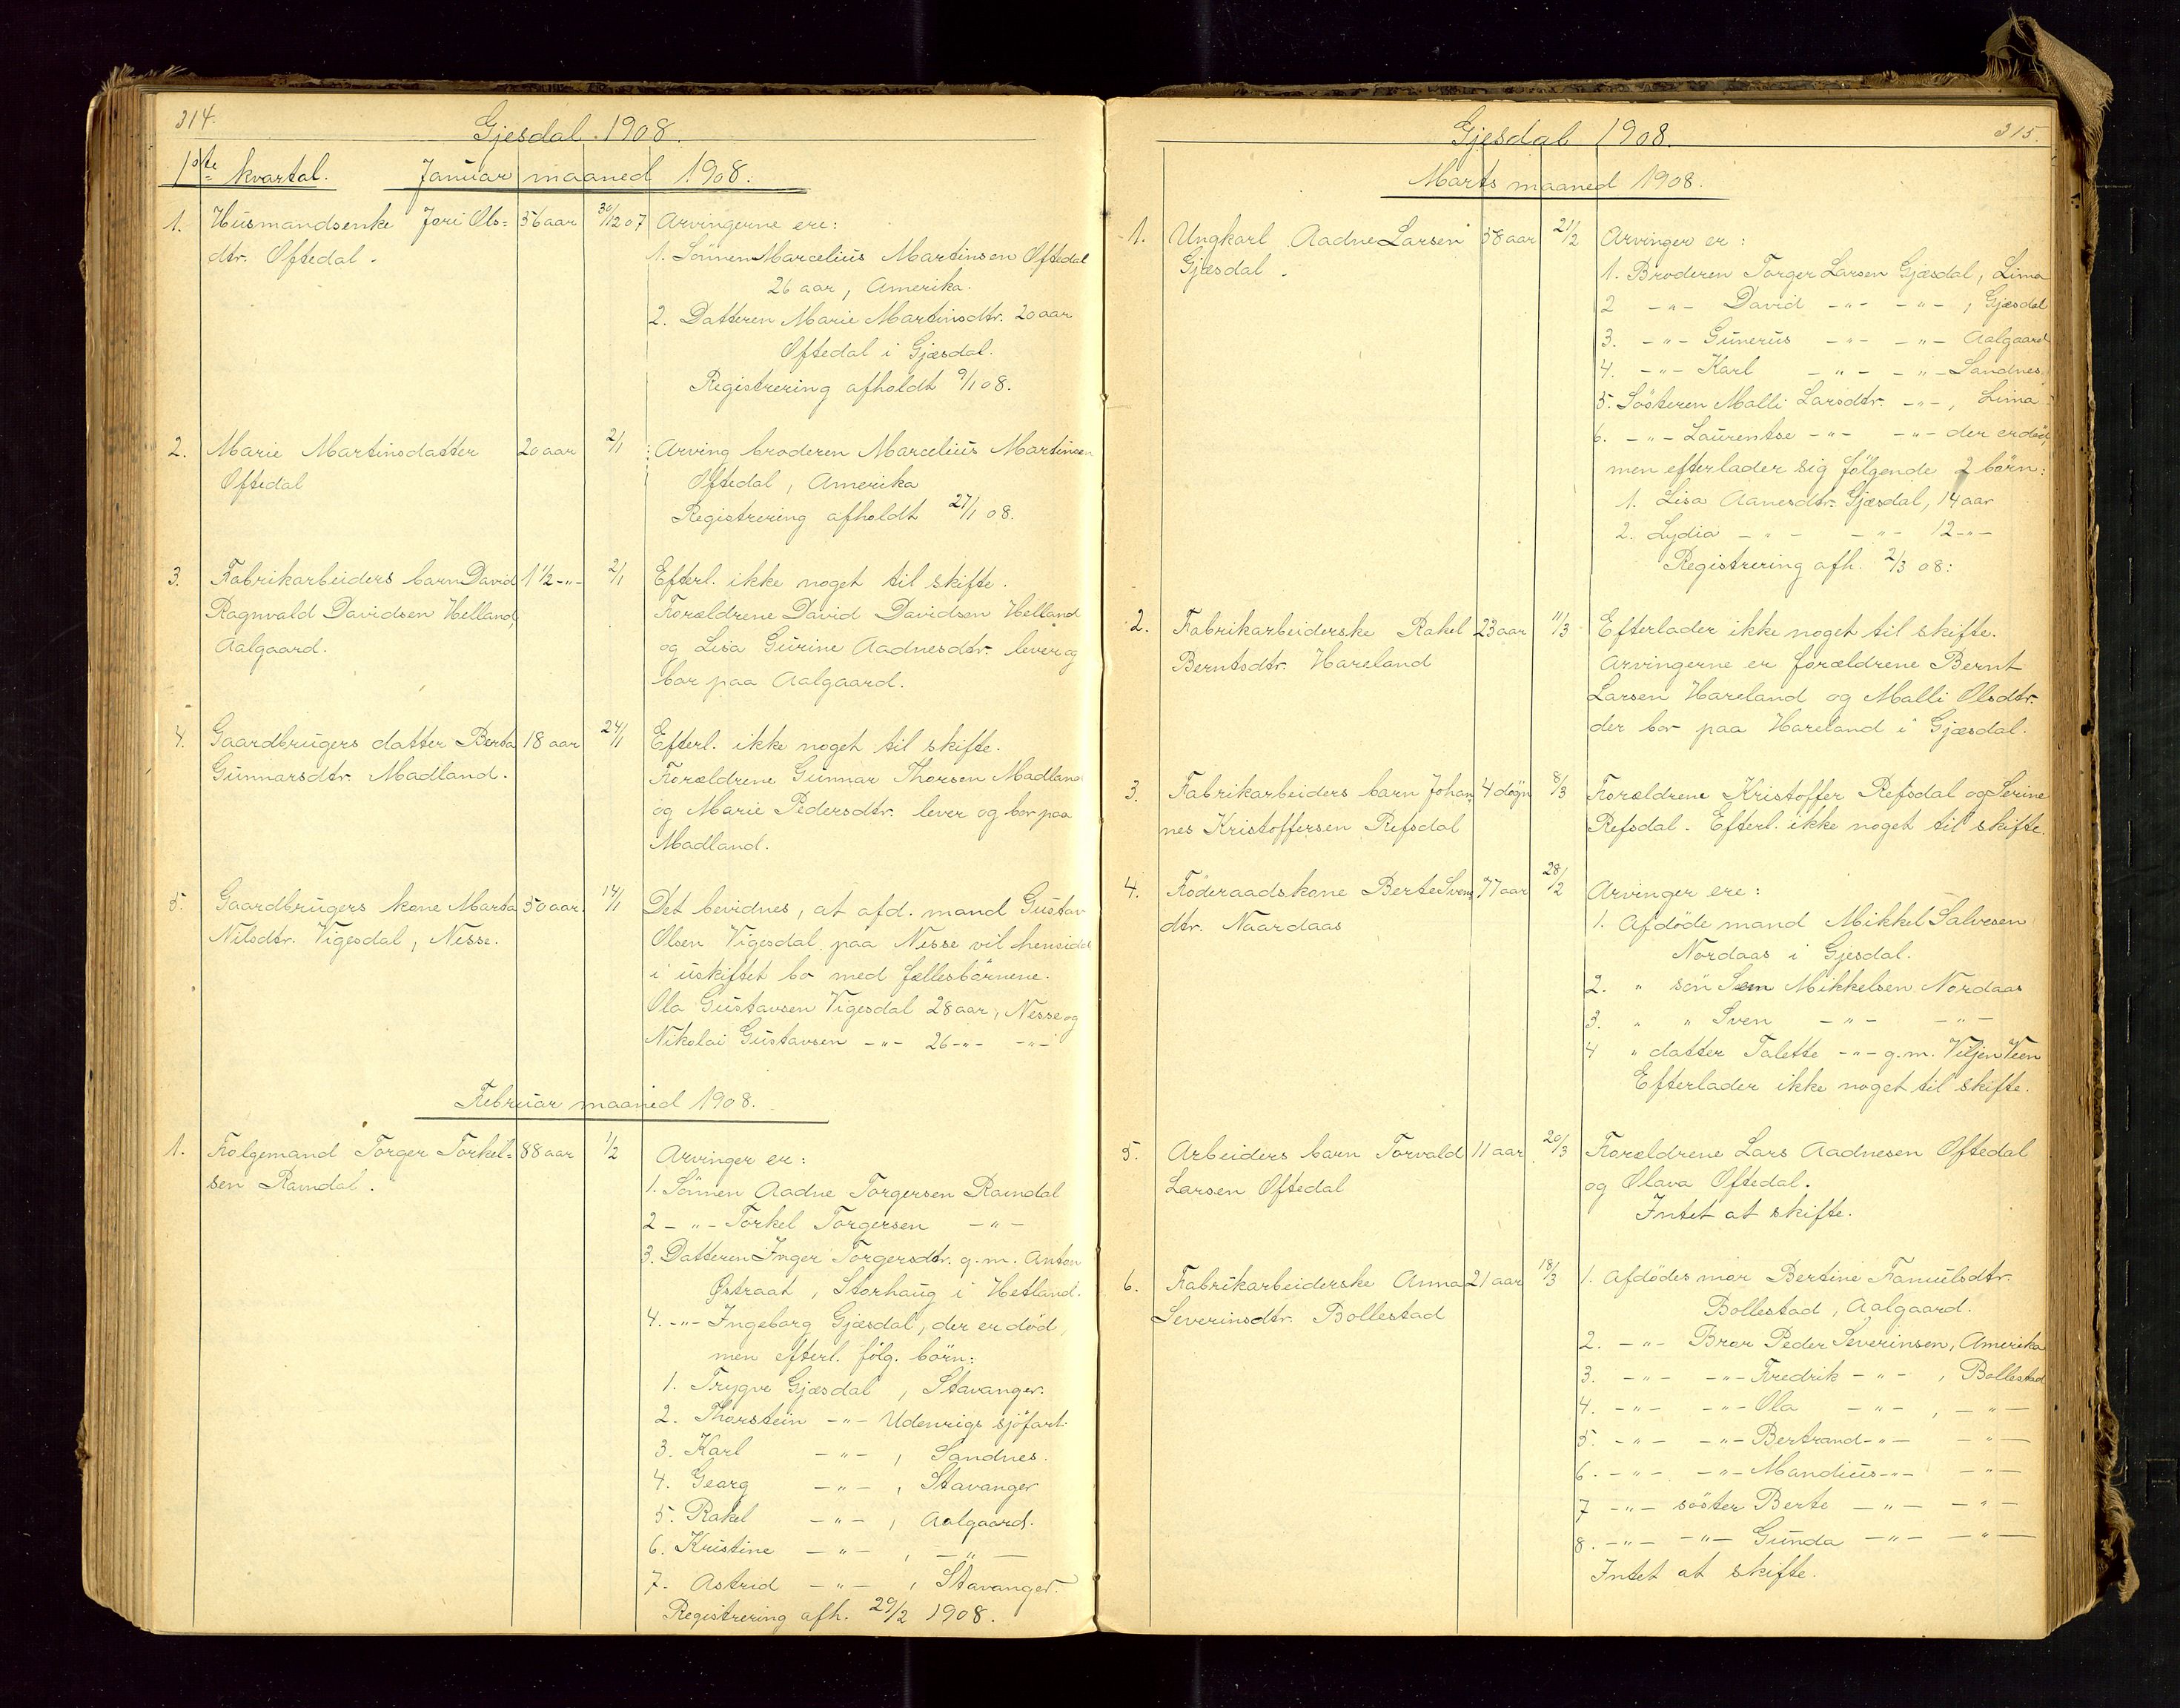 314.
Gjesdal 1908.
1ste kvartal. Januar maaned 1908.
1. Husmandsenke Jori Ols= 56 aar 30/12 07 Arvingerne ere:
dtr. Oftedal. 1. Sönnen Marcelius Martinsen Oftedal
26 aar, Amerika.
2. Datteren Marie Martinsdtr. 20 aar
Oftedal i Gjæsdal.
Registrering afholdt 9/1 08.
2. Marie Martinsdatter 20 aar 2/1 Arving broderen Marcelius Martinsen
Oftedal Oftedal, Amerika
Registrering afholdt 27/1 08.
3. Fabrikarbeiders barn David 1 1/2 -"- 2/1 Efterl. ikke noget til skifte.
Ragnvald Davidsen Helland, Forældrene David Davidsen Helland
Aalgaard. og Lisa Gurine Aadnesdtr. lever og
bor paa Aalgaard.
4. Gaardbrugers datter Berta 18 aar 24/1 Efterl. ikke noget til skifte.
Gunnarsdtr. Madland. Forældrene Gunnar Thorsen Madland
og Marie Pedersdtr. lever og bor paa
Madland.
5. Gaardbrugers kone Marta 50 aar. 14/1 Det bevidnes, at afd. mand Gustav
Nilsdtr. Vigesdal, Nesse. Olsen Vigesdal paa Nesse vil hensidde
i uskiftet bo med fællesbörnene.
Ola Gustavsen Vigesdal 28 aar, Nesse og
Nikolai Gustavsen -"- 26 -"- -"-
Februar maaned 1908.
1. Folgemand Torger Torkel= 88 aar 1/2 Arvinger er:
sen Ramdal. 1. Sönnen Aadne Torgersen Ramdal
2 -"- Torkel Torgersen -"-
3. Datteren Inger Torgersdtr. g.m. Anton
Østraat, Storhaug i Hetland.
4. -"- Ingeborg Gjæsdal, der er död,
men efterl. fölg. börn:
1. Trygve Gjæsdal, Stavanger.
2. Thorstein -"- Udenrigs sjöfart.
3. Karl -"- , Sandnes.
4. Georg -"- , Stavanger
5. Rakel -"- , Aalgaard.
6. Kristine -"- , -"-
7. Astrid -"- , Stavanger.
Registrering afh. 29/2 1908.
315.
Gjesdal 1908.
Marts maaned 1908.
1. Ungkarl Aadne Larsen 58 aar 21/2 Arvinger er:
Gjæsdal. 1. Broderen Torger Larsen Gjæsdal, Lima
2 -"- David -"- -"- , Gjæsdal
3. -"- Gunerius -"- -"- Aalgaard
4. -"- Karl -"- -"- Sandnes.
5. Sösteren Malli Larsdtr. -"- , Lima
6. -"- Laurentse -"- -"- der er död,
men efterlader sig fölgende 2 börn:
1. Lisa Aanesdtr. Gjæsdal, 14 aar
2. Lydia -"- -"- 12 -"-
Registrering afh. 2/3 08:
2. Fabrikarbeiderske Rakel 23 aar 11/3 Efterlader ikke noget til skifte.
Berntsdtr. Hareland Arvingerne er forældrene Bernt
Larsen Hareland og Malli Olsdtr.
der bor paa Hareland i Gjæsdal.
3. Fabrikarbeiders barn Johan= 4 dögn 8/3 Forældrene Kristoffer Refsdal og Serine
nes Kristoffersen Refsdal Refsdal. Efterl. ikke noget til skifte.
4. Föderaadskone Berte Svens 77 aar 28/2 Arvinger ere:
dtr. Naardaas 1. Afdöde mand Mikkel Salvesen
Nordaas i Gjesdal.
2. " sön Sem Mikkelsen Nordaas
3. " " Sven -"- -"-
4 " datter Talette -"- g.m. Viljen Veen
Efterlader ikke noget til skifte.
5. Arbeiders barn Torvald 11 aar 20/3 Forældrene Lars Aadnesen Oftedal
Larsen Oftedal og Olava Oftedal.
Intet at skifte.
6. Fabrikarbeiderske Anna 21 aar 18/3 1. Afdödes mor Bertine Famulsdtr.
Severinsdtr. Bollestad Bollestad, Aalgaard.
2. -"- Bror Peder Severinsen, Amerika
3. -"- -"- Fredrik -"- , Bollestad
4. -"- -"- Ola -"- , -"-
5. -"- -"- Bertrand -"- -"-
6. -"- -"- Mandius -"- -"-
7 -"- söster Berte -"- -"-
8. -"- -"- Gunda -"- -"-
Intet at skifte.